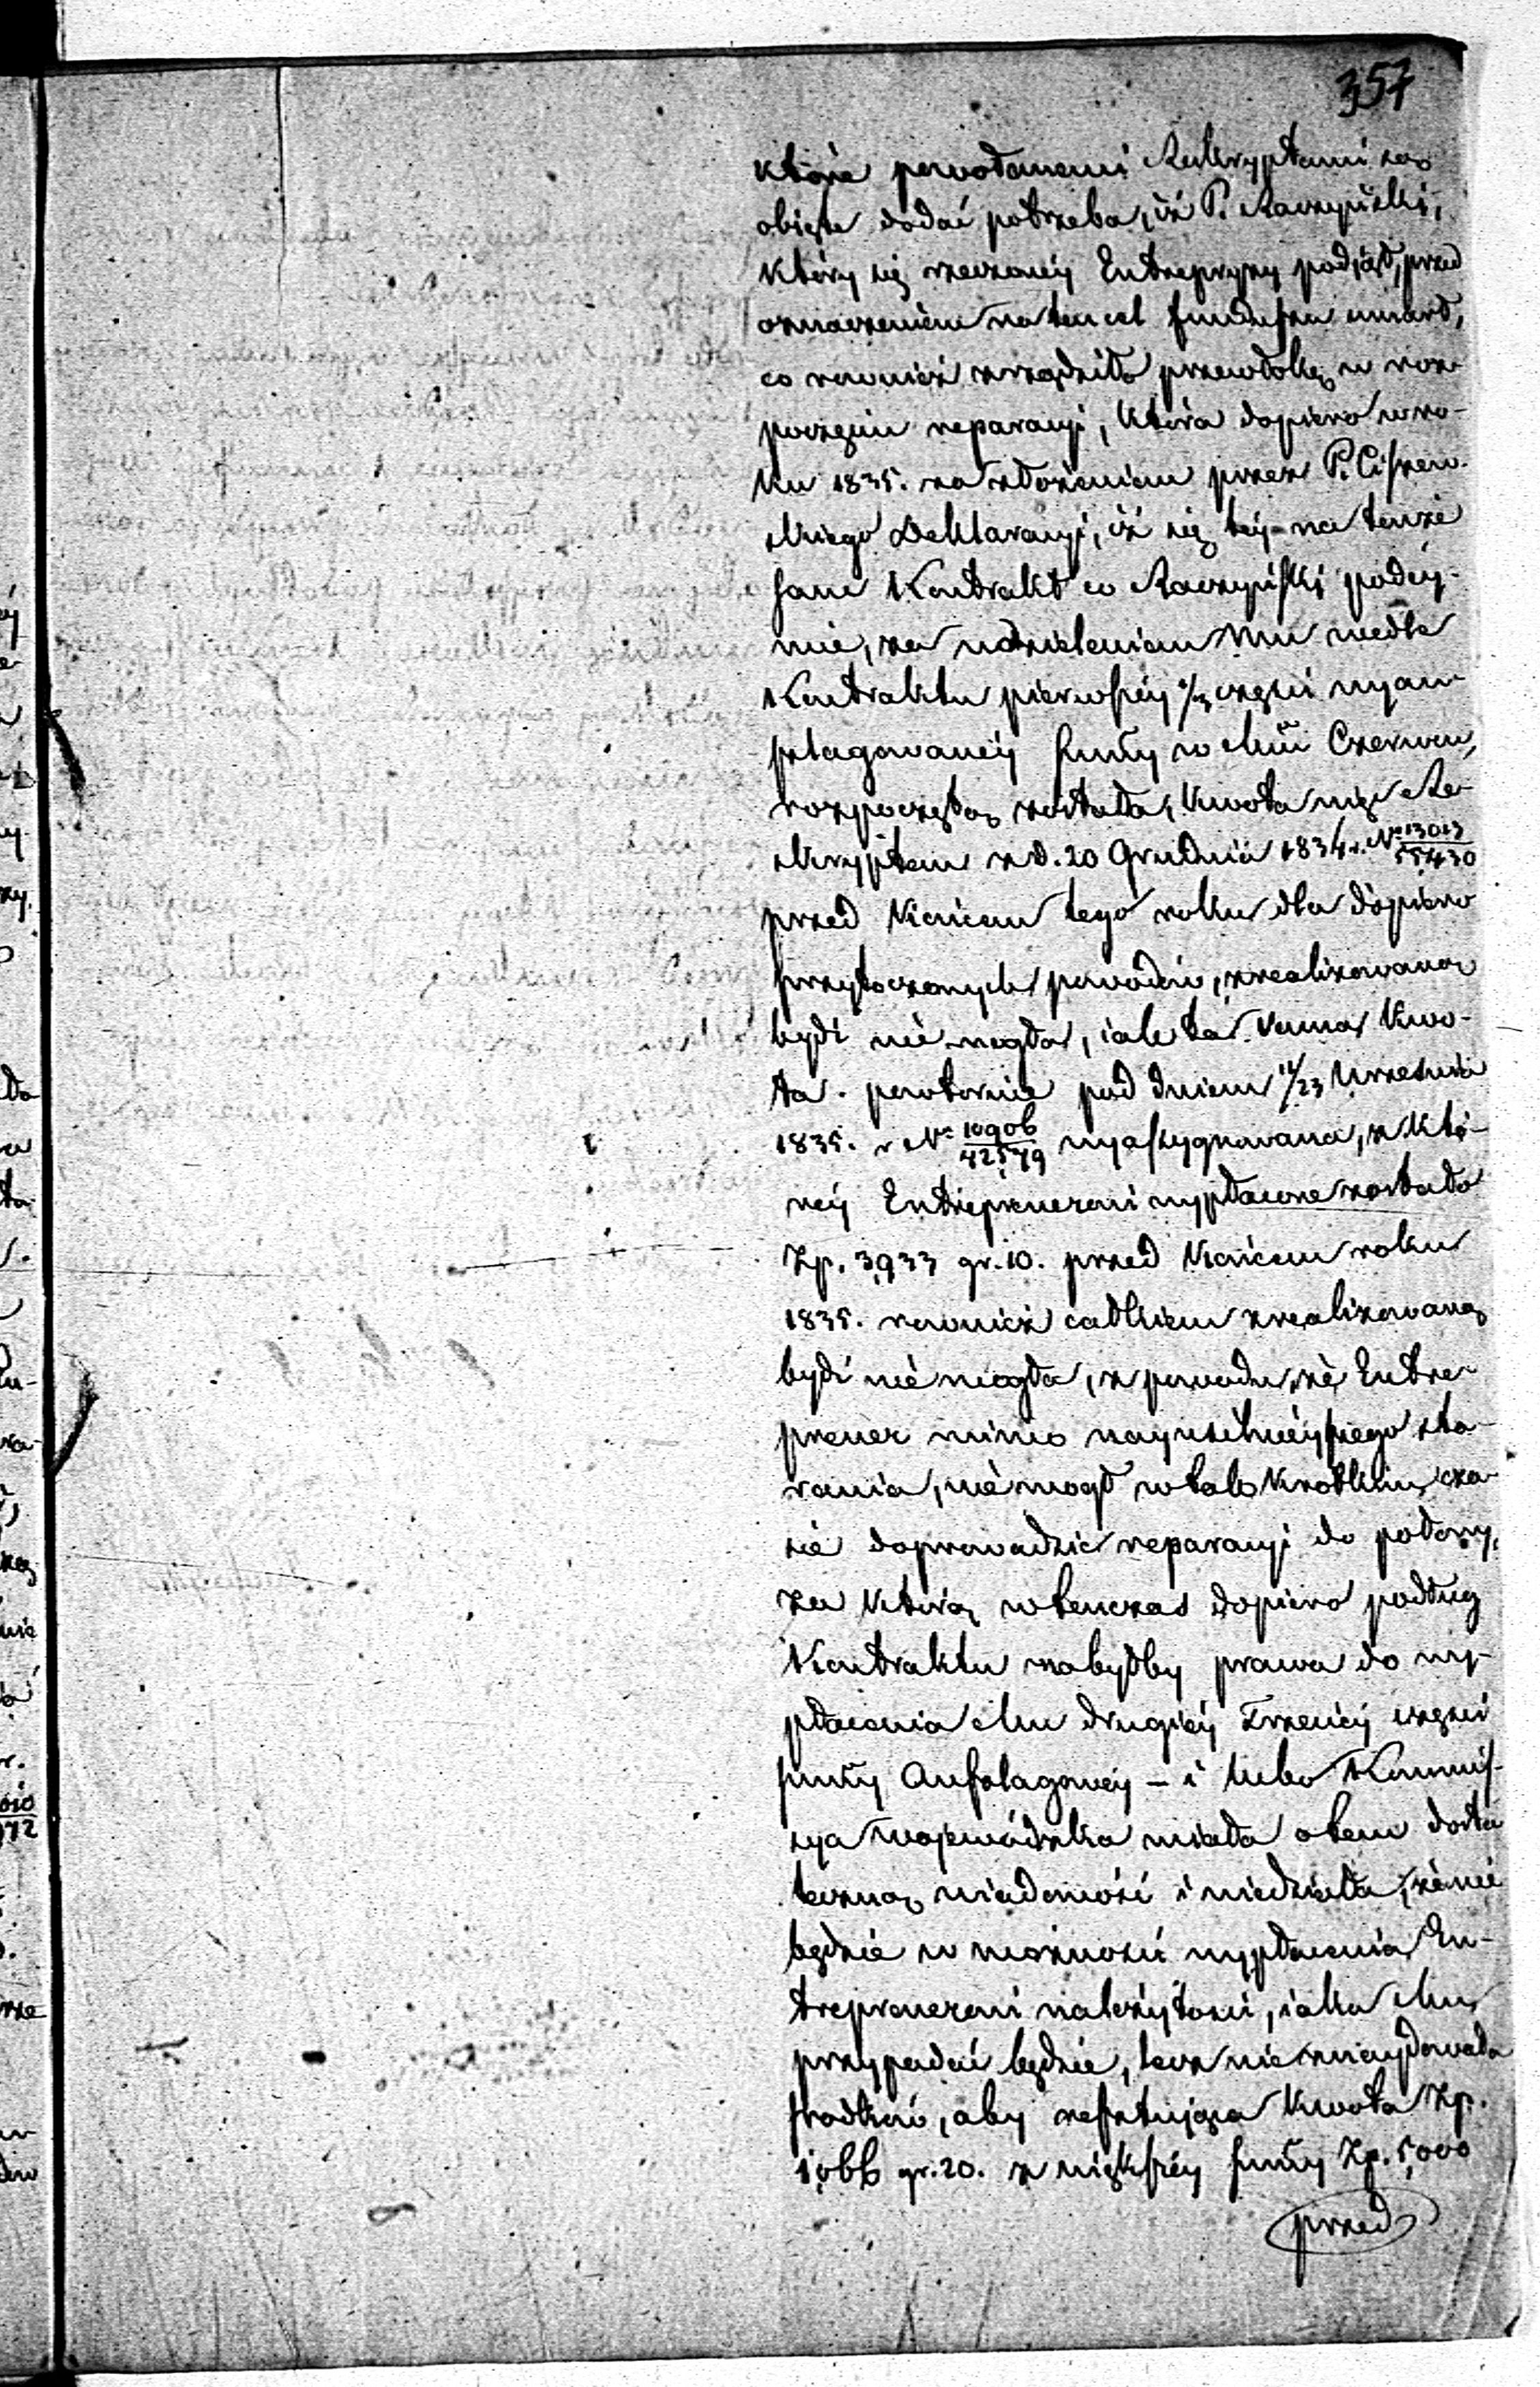 357
które powołanemi Reskryptami są
objęte dodać potrzeba, iż P. Raczyński,
który się rzeczonéy Entrepryzy podjął, przed
oznaczeniem na ten cel funduszu umarł,
co rownież zrządziło przewłokę w roz-
poczęciu reparacyi, która dopiero w ro-
ku 1835. za złożeniem przez P. Ciszew-
skiego Deklaracyi, iż się téy na tenże
sam Kontrakt co Raczyński podéy-
mie, za udzieleniem Mu wedle
Kontraktu pierwszéy 1/3 części wyan-
szlagowanéy summy w Mcu Czerwcu,
rozpoczętą została, kwota więc Re-
skryptem z d. 20 Grudnia 1834 r. No 13013/55430
przed końcem tego roku dla dopiero
przytoczonych powodów, zrealizowaną
bydź nie mogła, iak ta sama kwo-
ta powtornie pod dniem 11/23 Września
1835. r No 10906/42579 wyassygnowana, z któ-
réy Entreprenerowi wypłacone zostało
Zp. 3,933 gr. 10. przed końcem roku
1835. rownież całkiem zrealizowaną
bydź nie mogła, z powodu, że Entre-
prener mimo nayusilnieyszego sta-
rania, nie mogł w tak krótkim cza-
sie doprowadzić reparacyi do połowy,
za którą wtenczas dopiero podług
Kontraktu nabyłby prawa do wy-
płacenia Mu drugiéy Trzeciéy części
summy Anszlagowéy – i lubo Kommis-
sya Wojewódzka miała o tem dosta
teczną wiadomość i wiedziała, że nie
będzie w możności wypłacenia En-
treprenerowi należytości, iaka Mu
przypadać będzie, lecz nie znaydowała
srodków, aby resztująca kwota Zp.
1,066 gr. 20. z większéy summy Zp. 5,000
przed